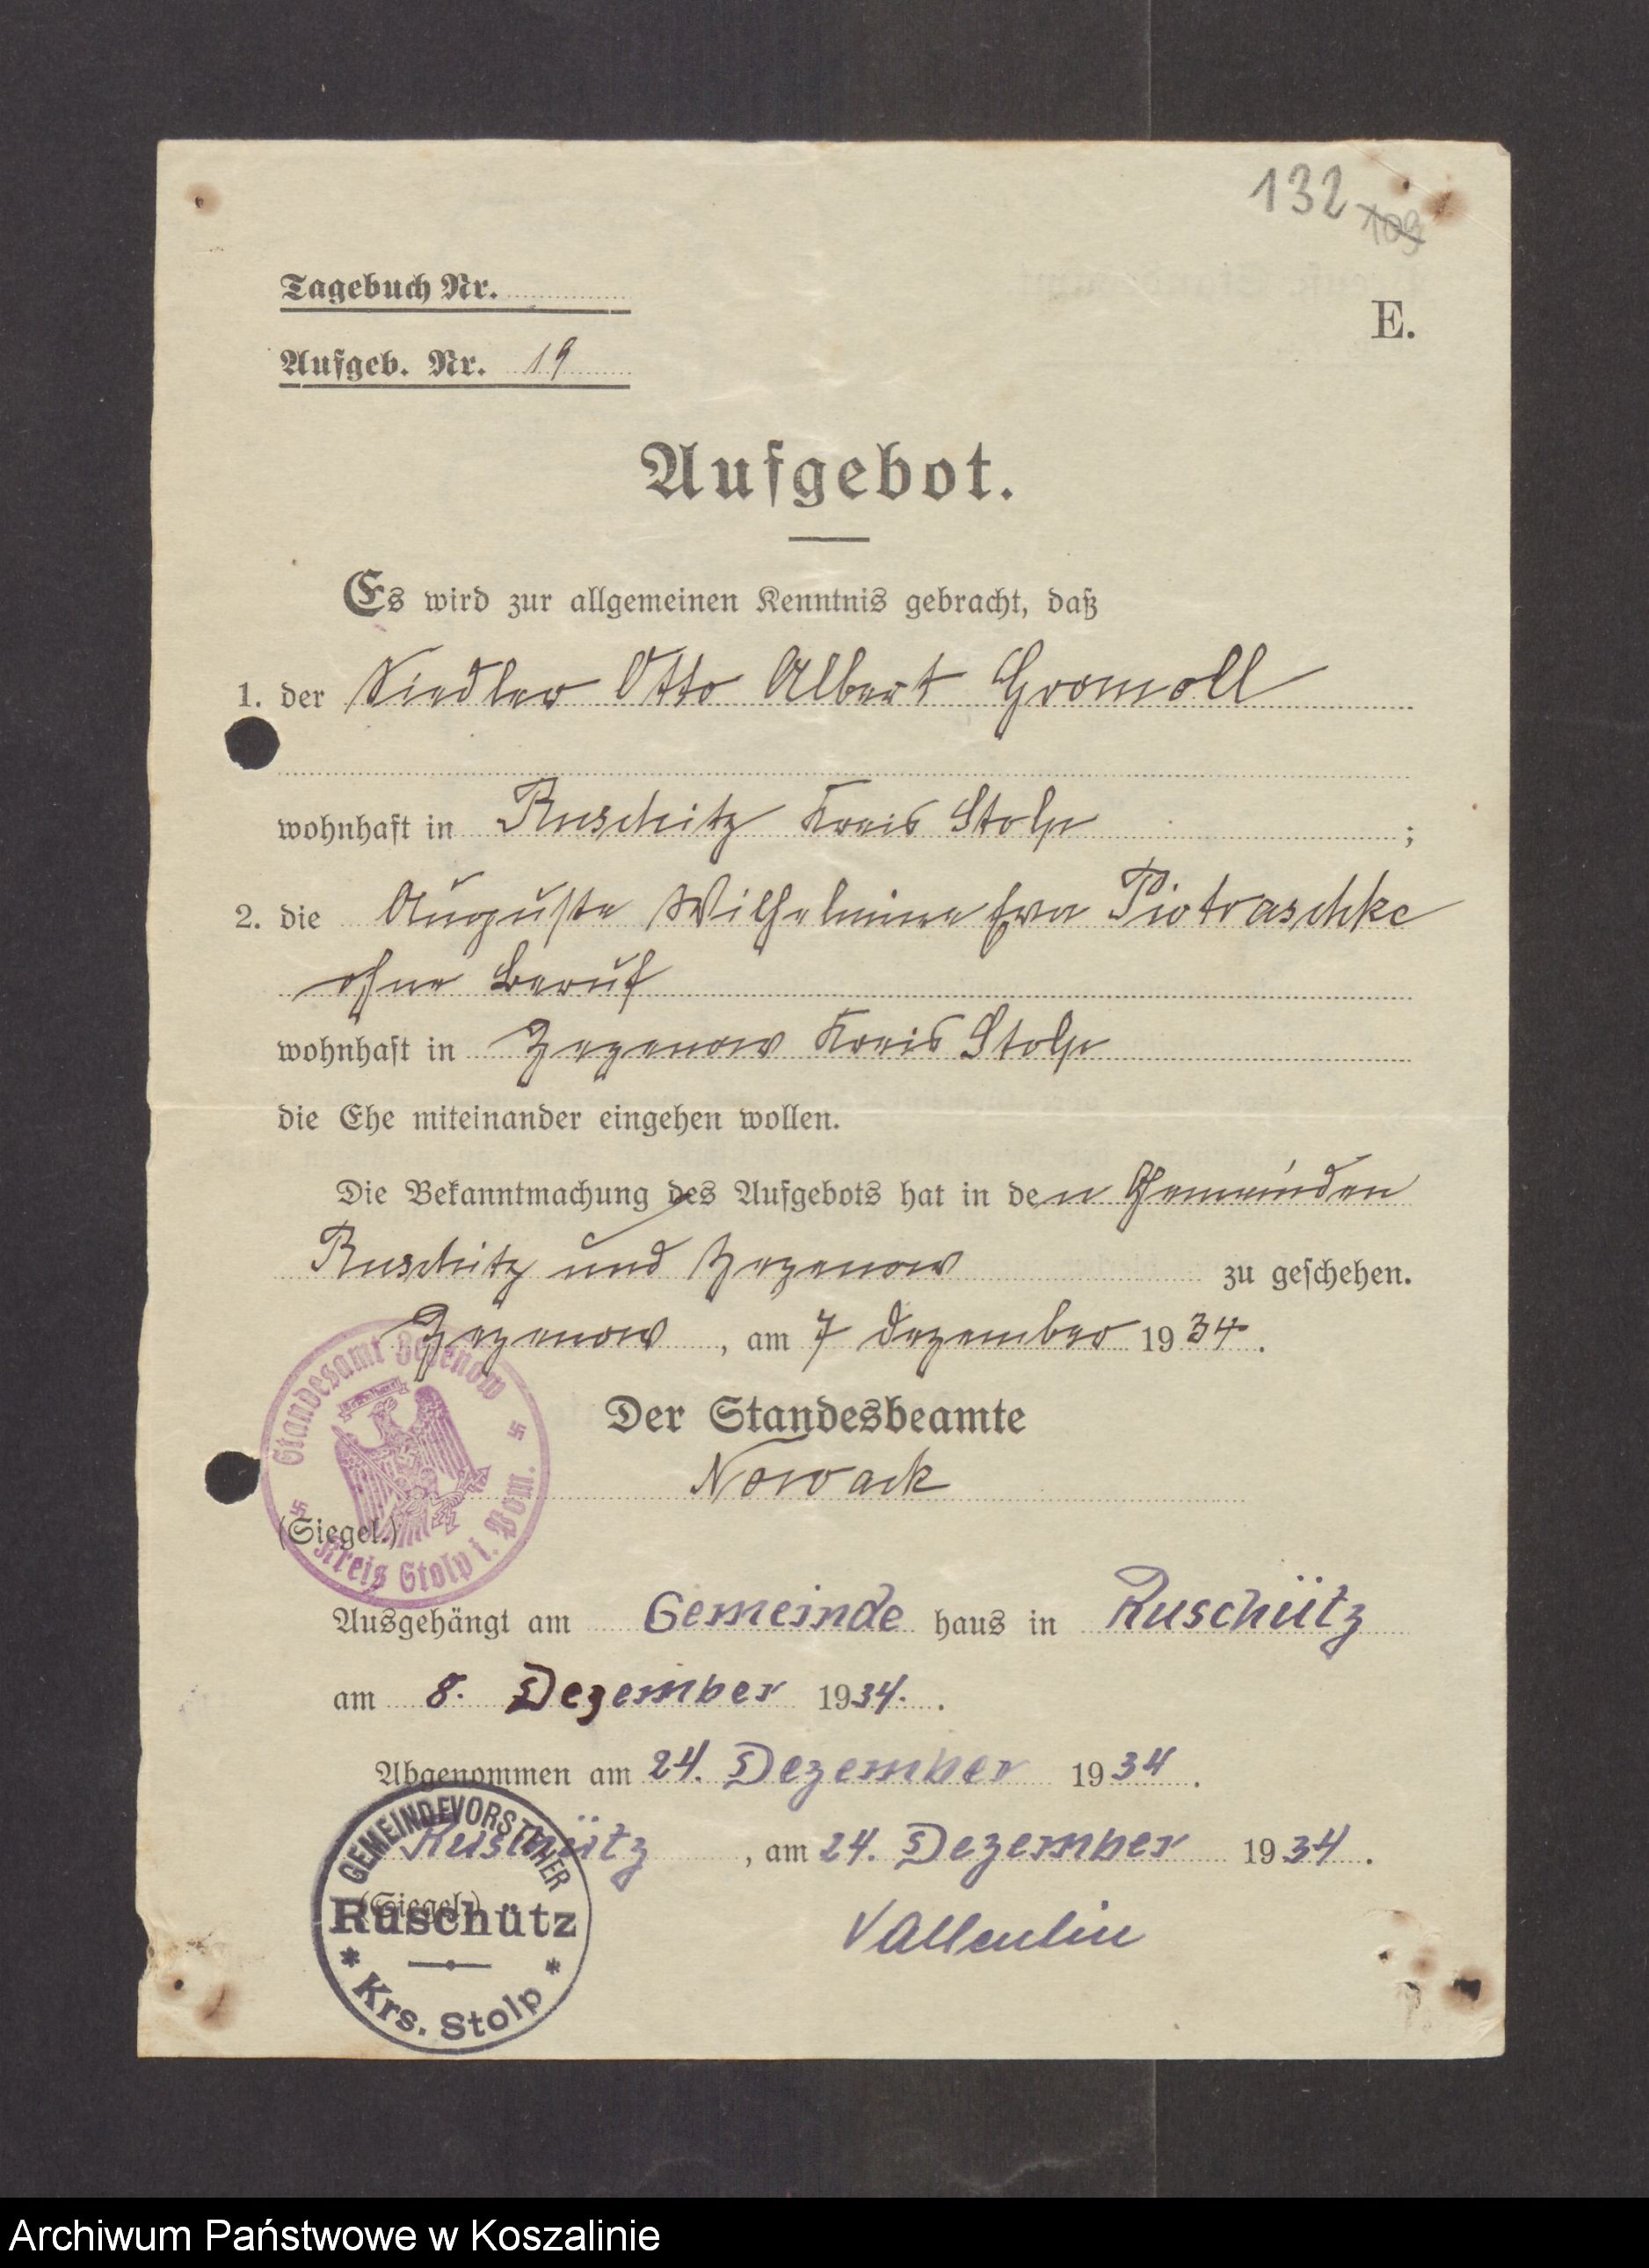 132 109
Tagebuch Nr.
E.
Aufgeb. Nr. 19
Aufgebot.
Es wird zur allgemeinen Kenntnis gebracht, daß
1. der Siedler Otto Albert Gromoll
wohnhaft in Ruschitz Kreis Stolp ;
2. die Auguste Wilhelmine Eva Piotraschke
ohne Beruf
wohnhaft in Zezenow Kreis Stolp
die Ehe miteinander eingehen wollen.
Die Bekanntmachung des Aufgebots hat in den Gemeinden
Ruschitz und Zezenow zu geschehen.
Zezenow, am 7 Dezember 1934.
Standesamt Zezenow
Kreis Stolp i. Pom.
Der Standesbeamte
Nowack
(Siegel.)
Ausgehängt am Gemeinde haus in Ruschütz
am 8. Dezember 1934. .
Abgenommen am 24. Dezember 1934.
Ruschütz, am 24. Dezember 1934.
(Siegel.)
GEMEINDEVORSTEHER
Ruschütz
* Krs. Stolp *
Vallentin
Archiwum Państwowe w Koszalinie